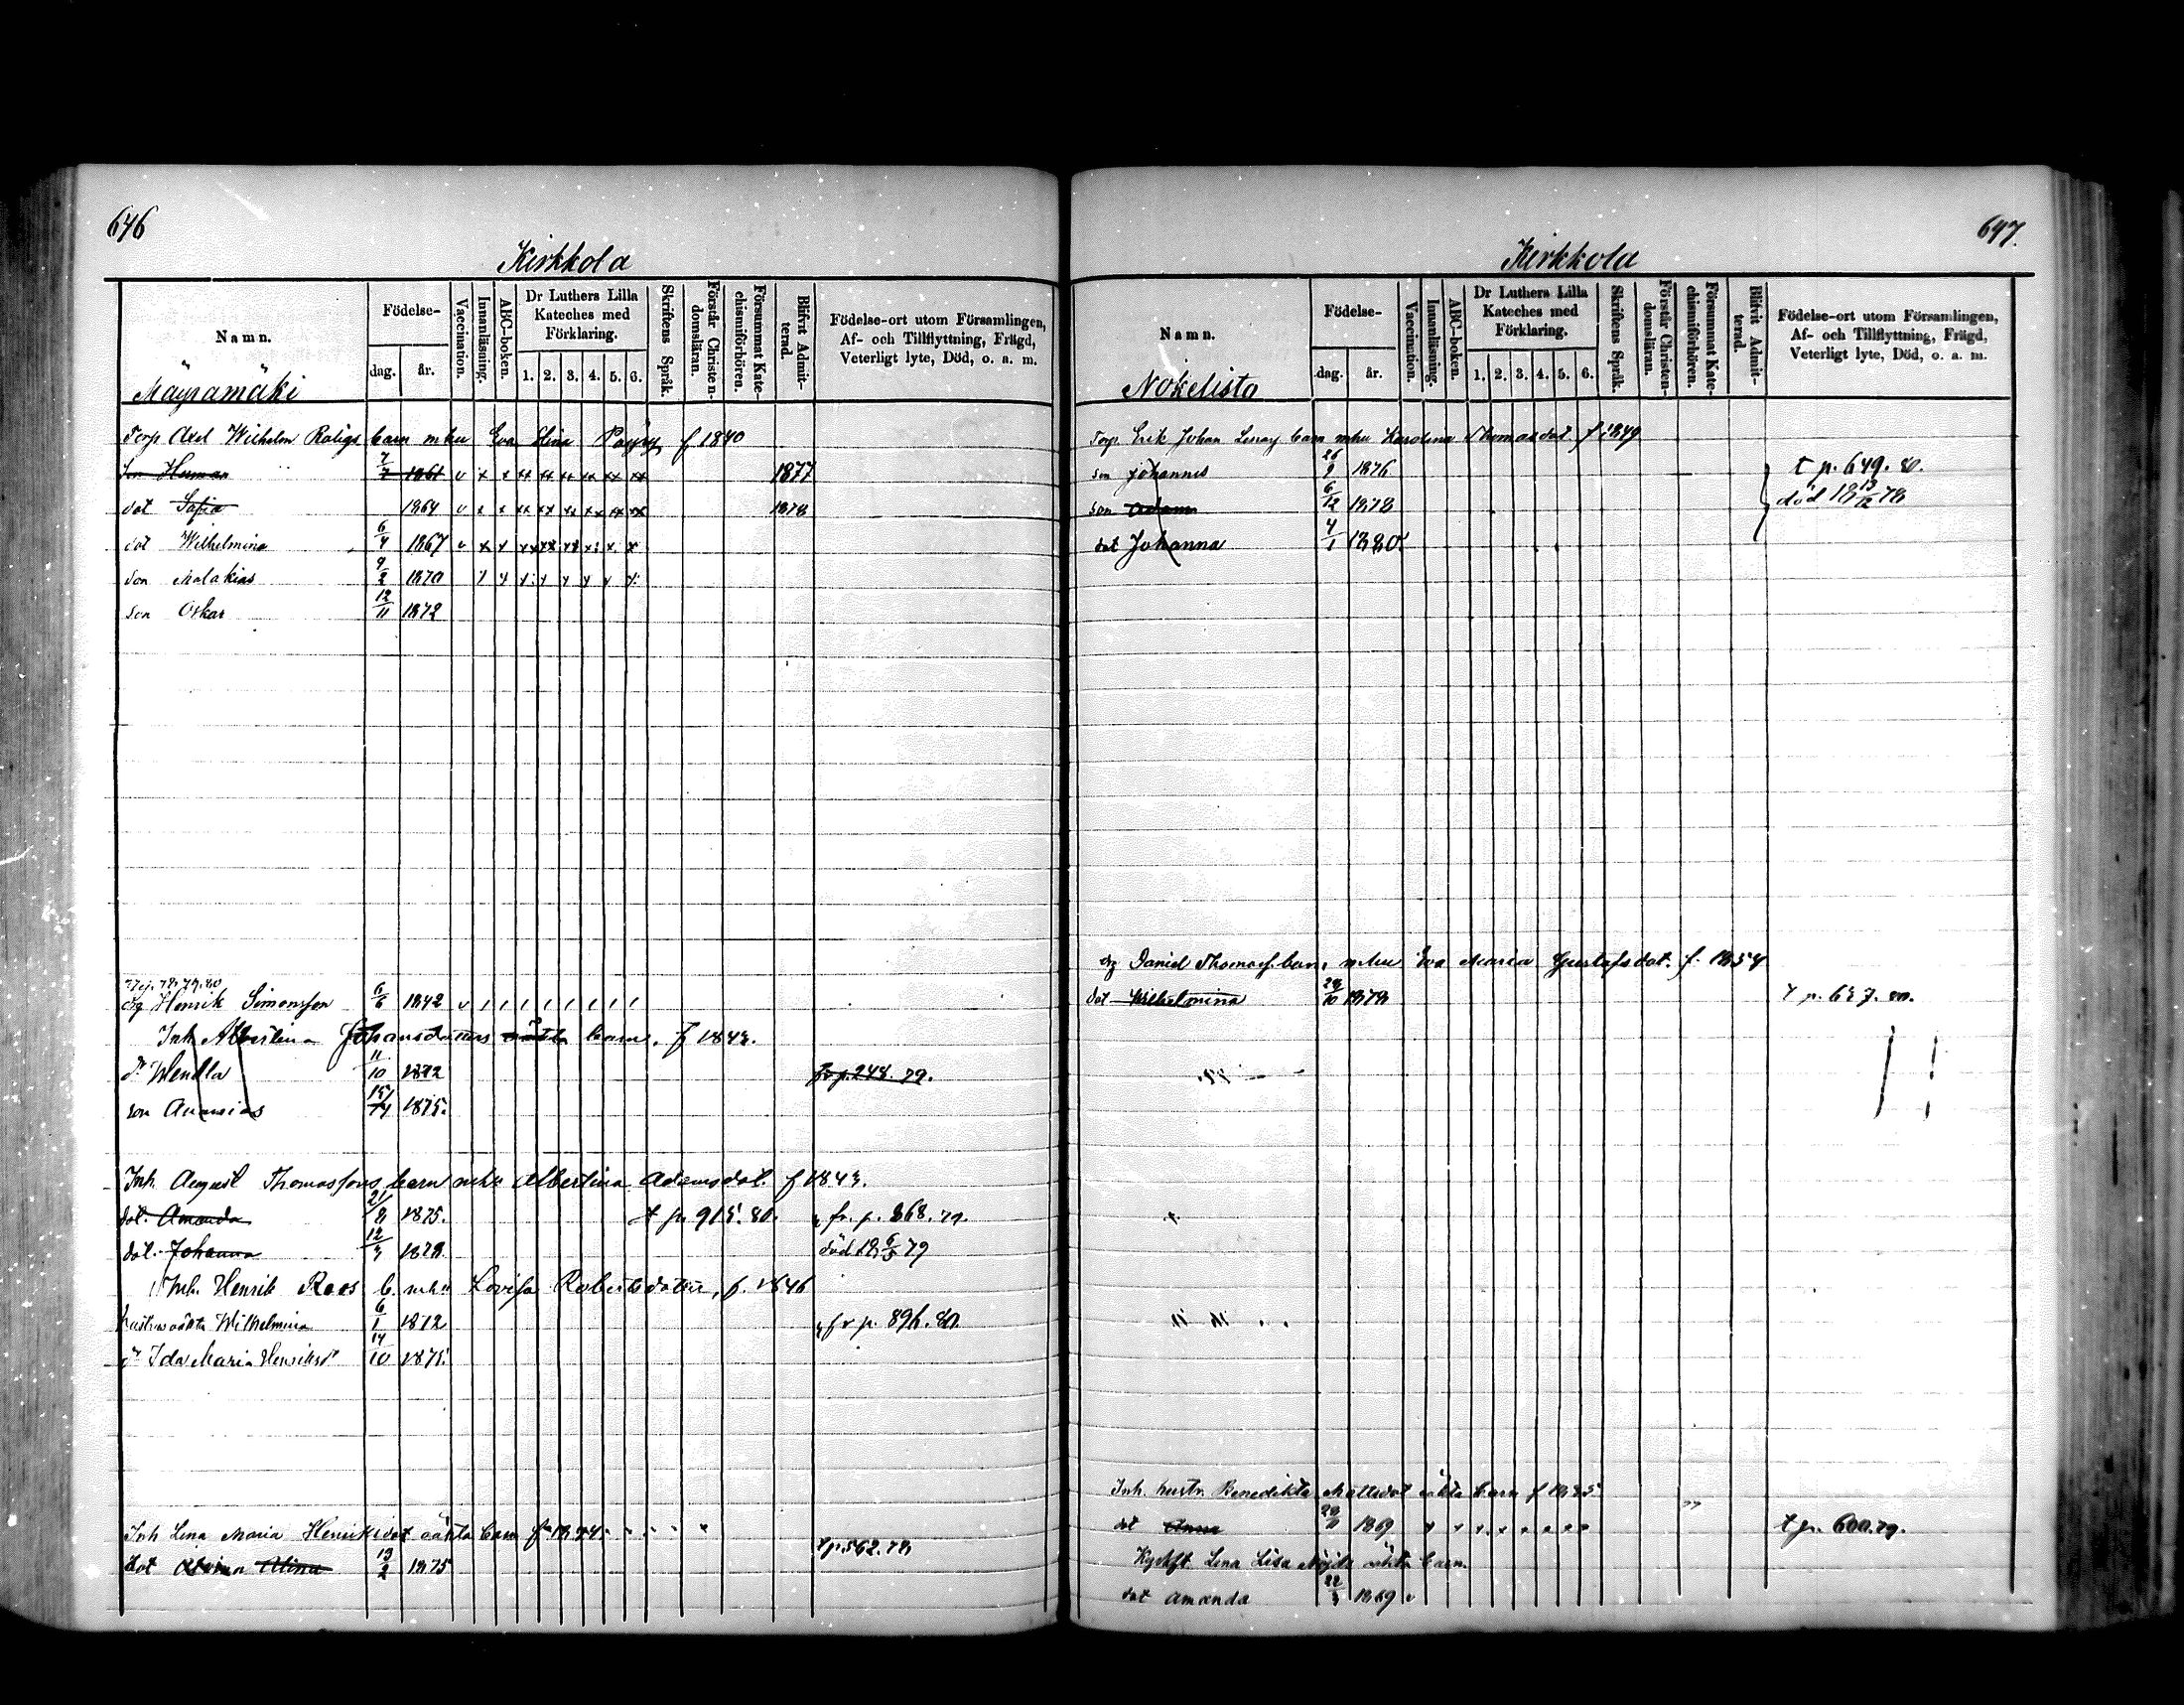 646
Kirkkola
Namn.
Födelse-
dag.
år.
Vaccination.
Innanläsning.
ABC-boken.
Dr Luthers Lilla Kateches med Förklaring.
1. 2. 3. 4. 5. 6.
Skriftens Språk.
Förstår Christendomsläran.
Försummat Katechismiförhören.
Blifvit Admitterad.
Födelse-ort utom Församlingen, Af- och Tillflyttning, Frägd, Veterligt lyte, Död, o. a. m.
Mäyrämäki
Torp Axel Wilhelm Roligs barn mhu Eva Stina Päyry f 1840
son Herman 1861 v x x xx xx xx xx xx xx 1877
dot Sofia 1864 v x x xx xx xx xx xx xx 1878
dot Wilhelmina 6/4 1867
son Malakias 9/2 1870
son Oskar 12/11 1872
Henrik Simonsson 6/6 1842 v
Inh Albertina Johansdotters oäkta barn, f 184
dr Wendla 11/10 1872 fr p. 248. 79.
son Ananias 1875.
Inh. August Thomassons barn mhu Albertina Adamsdot. f 184
dot. Amanda 21/8 1875. t p. 915. 80. fr. p. 868. 79.
dot. Johanna 1878 död 18 6/5 79
Inh. Henrik Roos b. mhu Lovisa Robertsdotter, f. 1846
hustruns oäkta Wilhelmina 6/1 1872 fr p. 896. 80.
dr Ida Maria Henriksdr 14/10 1875.
Inh Lena Maria Henriksdot oäkta barn f 1844
t p. 562. 78
dot Alina 13/2 1875
647.
Kirkkola
Namn.
Födelse-
dag.
år.
Vaccination.
Innanläsning.
ABC-boken.
Dr Luthers Lilla Kateches med Förklaring.
1. 2. 3. 4. 5. 6.
Skriftens Språk.
Förstår Christendomsläran.
Försummat Katechismiförhören.
Blifvit Admitterad.
Födelse-ort utom Församlingen, Af- och Tillflyttning, Frägd, Veterligt lyte, Död, o. a. m.
Nokelisto
Torp. Erik Johan barn mhu Karolina Thomasdot. f 1849
son Johannes 26/9 1876 t p. 649. 80.
son Adam 6/12 1878 död 18 13/12 78
dot Johanna 4/1 1880.
Daniel Thomass. barn, mhu Eva Maria Gustafsdot. f. 1854
dot Wilhelmina 28/10 1878 t p. 627. 80.
Inh. hustr. Benedikta Mattsdot oäkta barn f 1835
dot Anna 1869 t p. 600. 79.
Lena Lisa oäkta barn
dot Amanda 1869